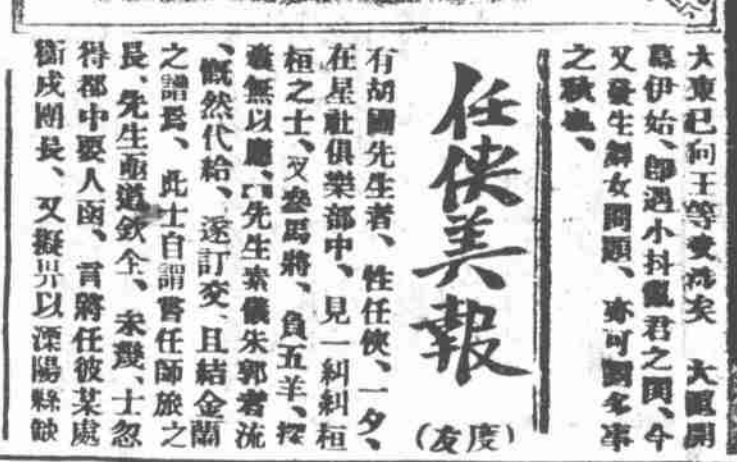 大東已向王等交涉矣　大華開
幕伊始、卽遇小抖亂君之閧、今
又發生舞女問題、亦可謂多事
之秋也、
任俠美報
（度友）
有胡國先生者、性任俠、一夕、
在星社俱樂部中、見一糾糾桓
桓之士、叉麥馬將、負五羊、探
囊無以應、先生素儀朱郭者流
、慨然代給、遂訂交、且結金蘭
之譜焉、此士自謂嘗任師旅之
長、先生亟道欽仝、未幾、士忽
得都中要人函、言將任彼某處
衞戍團長、又擬畀以溧陽縣缺